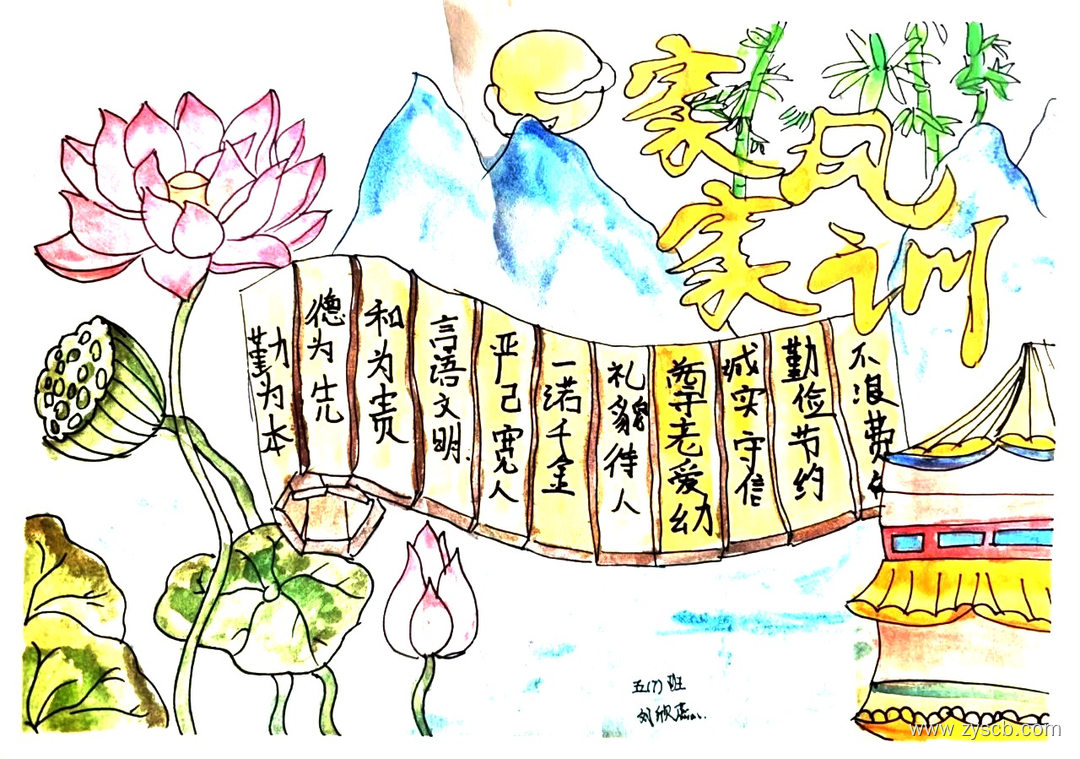 家风
家训
勤为本
德为先
和为贵
言语文明.
严己宽人
一诺千金
礼貌待人
尊老爱幼
诚实守信
勤俭节约
不浪费
五(7)班
刘欣
www.zyscb.com